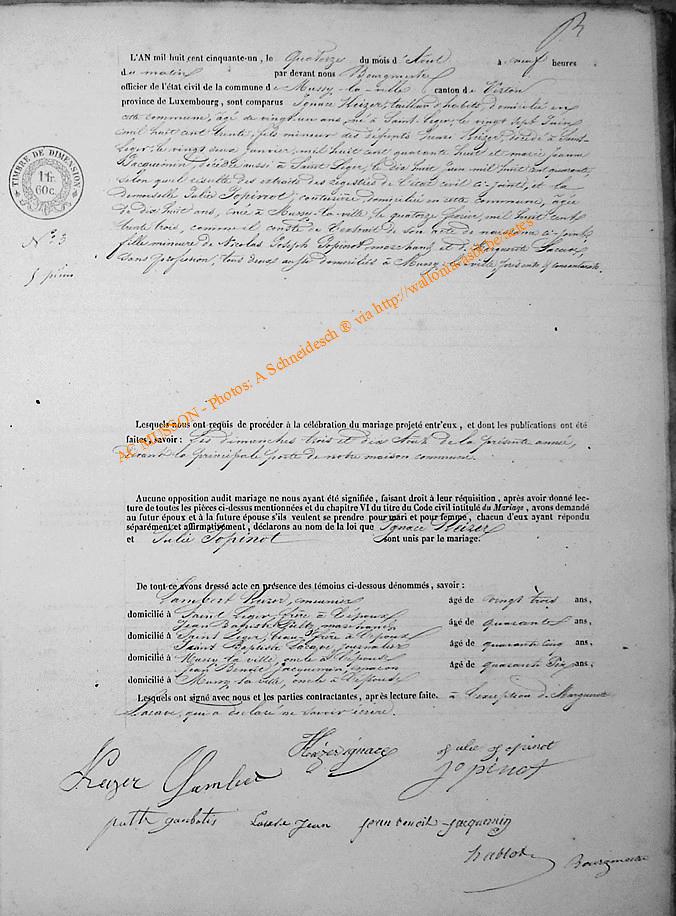 L'AN mil huit cent cinquante-un, le Quatorze du mois d'Août à neuf heures
du matin par devant nous Bourgmestre
officier de l'état civil de la commune de Mussy-la-ville canton de Virton
province de Luxembourg, sont comparus Ignace Keizer, tailleur d'habits, domicilié en
cette commune, âgé de vingt un ans, né à Saint-Leger, le vingt sept Juin
mil huit cent trente, fils mineur des défunts Keizer, décédé à Saint-
Leger, le vingt deux Janvier, mil huit cent quarante huit et marie Jeanne
Jacquemin, décédée aussi à Saint Leger, le dix huit Juin mil huit cent quarante,
selon qu'il résulte des extraits des registres de l'état civil ci-joints, et la
demoiselle Julie Jopinot, couturière, domiciliée en cette commune, âgée
de dix huit ans, née à Mussy-la-ville, le quatorze mil huit cent
trente trois, comme il conste de l'extrait de son acte de naissance ci-joint,
fille mineure de Nicolas Joseph Jopinot, marchand, et de Marguerite Lacave,
sans profession, tous deux aussi domiciliés à Mussy-la-ville, présents & consentants.
TIMBRE DE DIMENSION
1 fr.
60 c.
N° 3
AC MUSSON - Photos: A Schneidesch ® via http://wallonia.asbl.be.sates
Lesquels nous ont requis de procéder à la célébration du mariage projeté entr'eux, et dont les publications ont été
faites, savoir: Les dimanches trois et dix Août de la présente année,
devant la principale porte de notre maison commune.
Aucune opposition audit mariage ne nous ayant été signifiée, faisant droit à leur réquisition, après avoir donné lec-
ture de toutes les pièces ci-dessus mentionnées et du chapitre VI du titre du Code civil intitulé du Mariage, avons demandé
au futur époux et à la future épouse s'ils veulent se prendre pour mari et pour femme, chacun d'eux ayant répondu
séparément et affirmativement, déclarons au nom de la loi que Ignace Keizer
et Julie Jopinot sont unis par le mariage.
De tout ce avons dressé acte en présence des témoins ci-dessous dénommés, savoir:
Lambert Keizer, meunier âgé de vingt trois ans,
domicilié à Saint Leger, frère à l'époux
Jean Baptiste âgé de quarante ans,
domicilié à Saint Leger, beau-frère à l'époux
Jean Baptiste Lacave, journalier âgé de quarante cinq ans,
domicilié à Mussy-la-ville, oncle à l'épouse
Jean Benoit Jacquemin, maçon âgé de quarante six ans,
domicilié à Mussy-la-ville, oncle à l'époux
Lesquels ont signé avec nous et les parties contractantes, après lecture faite. à l'exception de Marguerite
Lacave, qui a déclaré ne savoir écrire.
Keizer ignace Julie Jopinot
Keizer Lambert Jopinot
Jean jean benoit Jacquemin
Bourgmestre